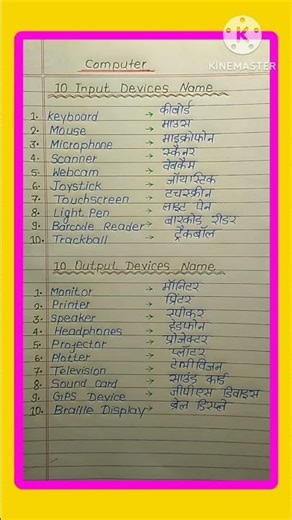 K
KINEMASTER
Computer
10 Input Devices Name
1. Keyboard → कीबोर्ड
2. Mouse → माउस
3. Microphone → माइक्रोफोन
4. Scanner → स्कैनर
5. Webcam → वेबकैम
6. Joystick → जॉयस्टिक
7. Touchscreen → टचस्क्रीन
8. Light Pen → लाइट पेन
9. Barcode Reader → बारकोड रीडर
10. Trackball → ट्रैकबॉल
10 Output Devices Name
1. Monitor → मॉनिटर
2. Printer → प्रिंटर
3. Speaker → स्पीकर
4. Headphones → हेडफोन
5. Projector → प्रोजेक्टर
6. Plotter → प्लॉटर
7. Television → टेलीविजन
8. Sound Card → साउंड कार्ड
9. GPS Device → जीपीएस डिवाइस
10. Braille Display → ब्रेल डिस्प्ले